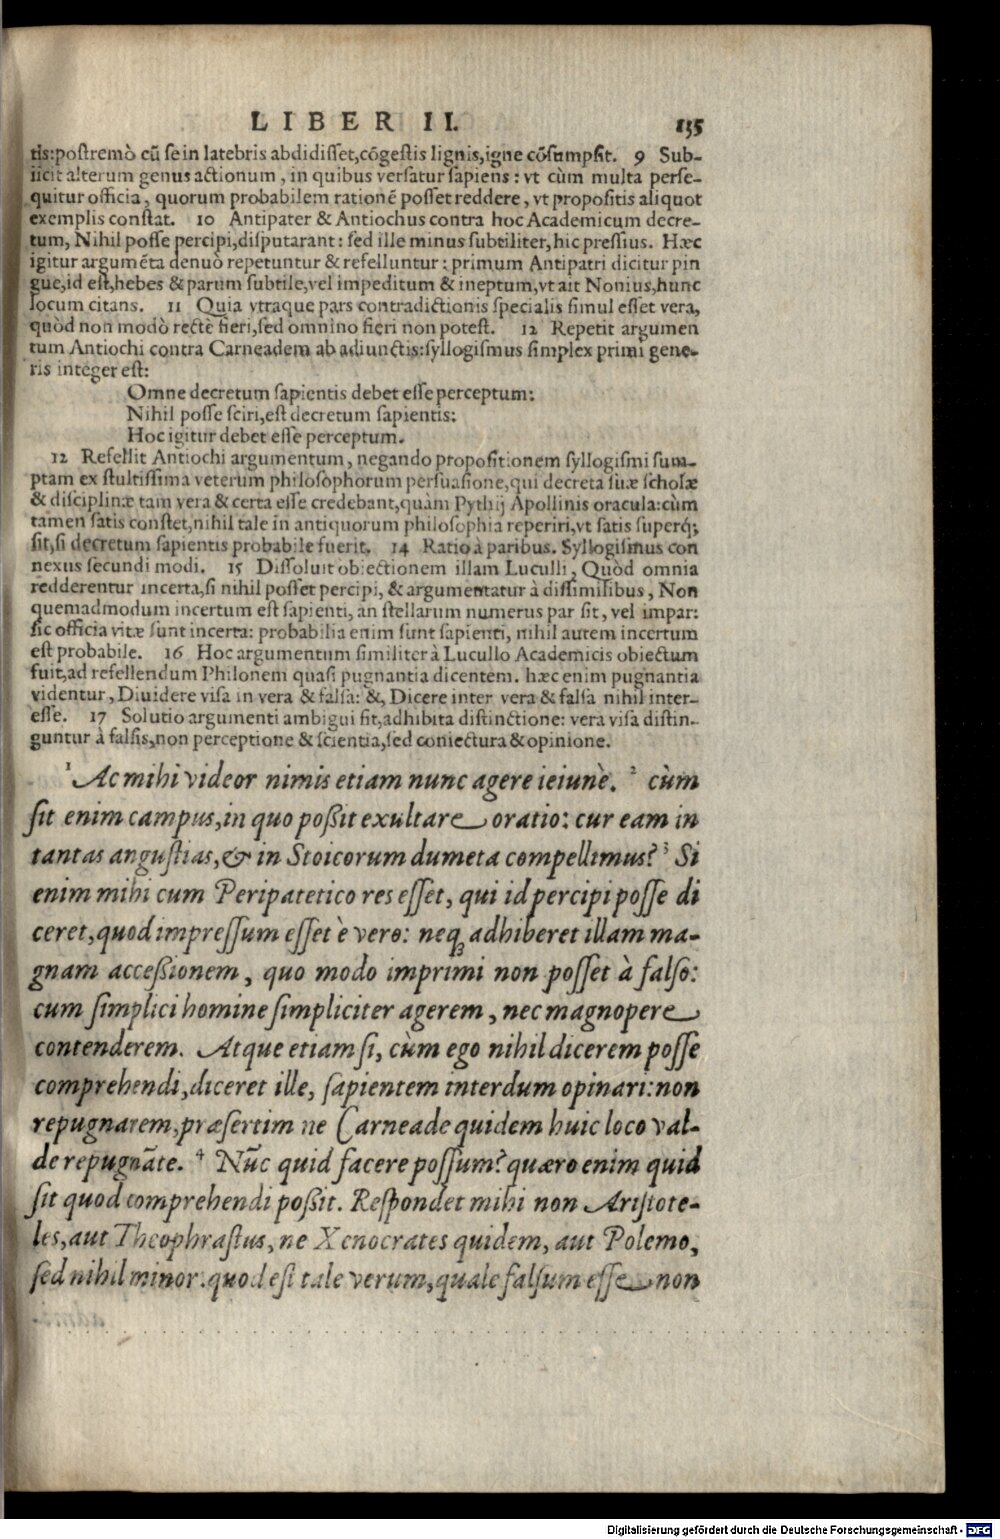 LIBER II. 135
tis:postremò cũ se in latebris abdidisset,cõgestis lignis,igne cõsumpsit. 9 Sub-
iicit alterum genus actionum, in quibus versatur sapiens: vt cùm multa perse-
quitur officia, quorum probabilem rationẽ posset reddere, vt propositis aliquot
exemplis constat. 10 Antipater & Antiochus contra hoc Academicum decre-
tum, Nihil posse percipi,disputarant: sed ille minus subtiliter,hic pressius. Hæc
igitur argumẽta denuò repetuntur & refelluntur: primum Antipatri dicitur pin
gue,id est,hebes & parum subtile,vel impeditum & ineptum,vt ait Nonius,hunc
locum citans. 11 Quia vtraque pars contradictionis specialis simul esset vera,
quòd non modò rectè fieri,sed omnino fieri non potest. 12 Repetit argumen
tum Antiochi contra Carneadem ab adiunctis:syllogismus simplex primi gene-
ris integer est:
Omne decretum sapientis debet esse perceptum:
Nihil posse sciri,est decretum sapientis:
Hoc igitur debet esse perceptum.
12 Refellit Antiochi argumentum, negando propositionem syllogismi sum-
ptam ex stultissima veterum philosophorum persuasione,qui decreta suæ scholæ
& disciplinæ tam vera & certa esse credebant,quàm Pythij Apollinis oracula:cùm
tamen satis constet,nihil tale in antiquorum philosophia reperiri,vt satis superq;
sit,si decretum sapientis probabile fuerit. 14 Ratio à paribus. Syllogismus con
nexus secundi modi. 15 Dissoluit obiectionem illam Luculli, Quòd omnia
redderentur incerta,si nihil posset percipi, & argumentatur à dissimilibus, Non
quemadmodum incertum est sapienti, an stellarum numerus par sit, vel impar:
sic officia vitæ sunt incerta: probabilia enim sunt sapienti, nihil autem incertum
est probabile. 16 Hoc argumentum similiter à Lucullo Academicis obiectum
fuit,ad refellendum Philonem quasi pugnantia dicentem. hæc enim pugnantia
videntur, Diuidere visa in vera & falsa: &, Dicere inter vera & falsa nihil inter-
esse. 17 Solutio argumenti ambigui fit,adhibita distinctione: vera visa distin-
guntur à falsis,non perceptione & scientia,sed coniectura & opinione.
1 Ac mihi videor nimis etiam nunc agere ieiunè. 2 cùm
sit enim campus,in quo possit exultare oratio: cur eam in
tantas angustias,& in Stoicorum dumeta compellimus? 3 Si
enim mihi cum Peripatetico res esset, qui id percipi posse di
ceret,quod impressum esset è vero: neq; adhiberet illam ma-
gnam accessionem, quo modo imprimi non posset à falso:
cum simplici homine simpliciter agerem, nec magnopere
contenderem. Atque etiam si, cùm ego nihil dicerem posse
comprehendi,diceret ille, sapientem interdum opinari:non
repugnarem,præsertim ne Carneade quidem huic loco val-
de repugnãte. 4 Nũc quid facere possum? quæro enim quid
sit quod comprehendi possit. Respondet mihi non Aristote-
les,aut Theophrastus, ne Xenocrates quidem, aut Polemo,
sed nihil minor. quod est tale verum,quale falsum esse non
Digitalisierung gefördert durch die Deutsche Forschungsgemeinschaft - DFG